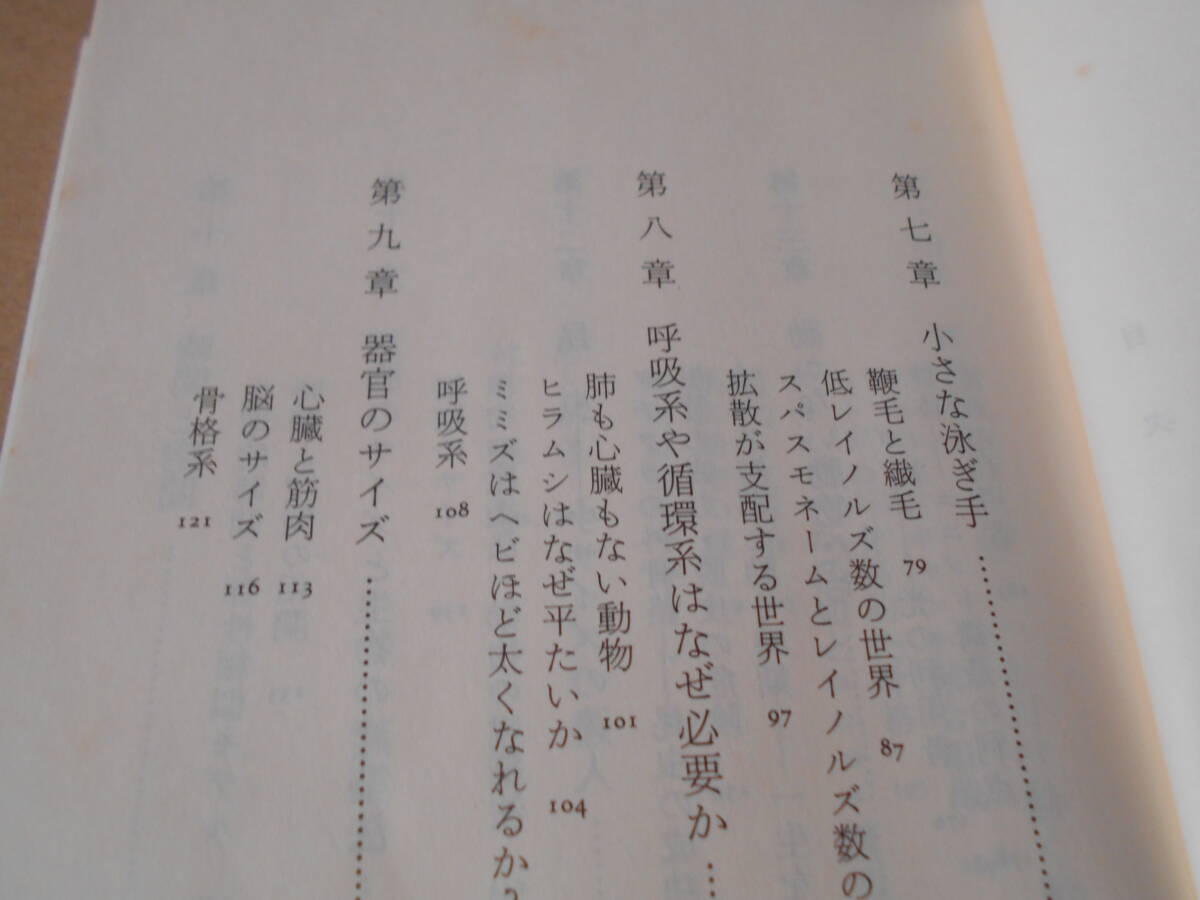 第七章 小さな泳ぎ手…………………
鞭毛と繊毛 79
低レイノルズ数の世界 87
スパスモネームとレイノルズ数の
拡散が支配する世界 97
第八章 呼吸系や循環系はなぜ必要か…
肺も心臓もない動物 101
ヒラムシはなぜ平たいか 104
ミミズはヘビほど太くなれるか?
呼吸系 108
第九章 器官のサイズ…………………
心臓と筋肉 113
脳のサイズ 116
骨格系 121